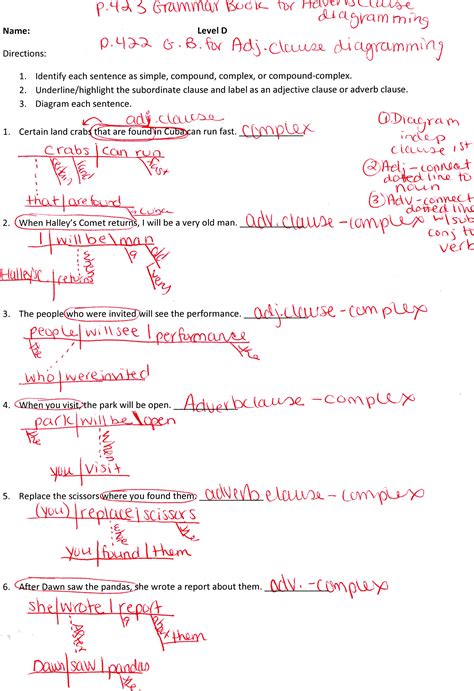 p.423 Grammar Book for Adverb Clause
diagramming
Name: Level D
p.422 G.B. for Adj. clause diagramming
Directions:
1. Identify each sentence as simple, compound, complex, or compound-complex.
2. Underline/highlight the subordinate clause and label as an adjective clause or adverb clause.
3. Diagram each sentence.
adj. clause
1. Certain land crabs that are found in Cuba can run fast. complex
① Diagram
indep
clause 1st
② Adj - connect
dotted line to
noun
③ Adv - connect
dotted line
w/ sub
conj to
verb
crabs | can run
certain land fast
that | are found
in Cuba
2. When Halley's Comet returns, I will be a very old man. adv. clause - complex
I | will be \ man
when a old very
Halley's C | returns
3. The people who were invited will see the performance. adj. clause - complex
people | will see | performance
the the
who | were invited
4. When you visit, the park will be open. Adverb clause - complex
park | will be \ open
the when
you | visit
5. Replace the scissors where you found them. adverb clause - complex
(you) | replace | scissors
where the
you | found | them
6. After Dawn saw the pandas, she wrote a report about them. adv. - complex
she | wrote | report
After a about them
Dawn | saw | pandas
the